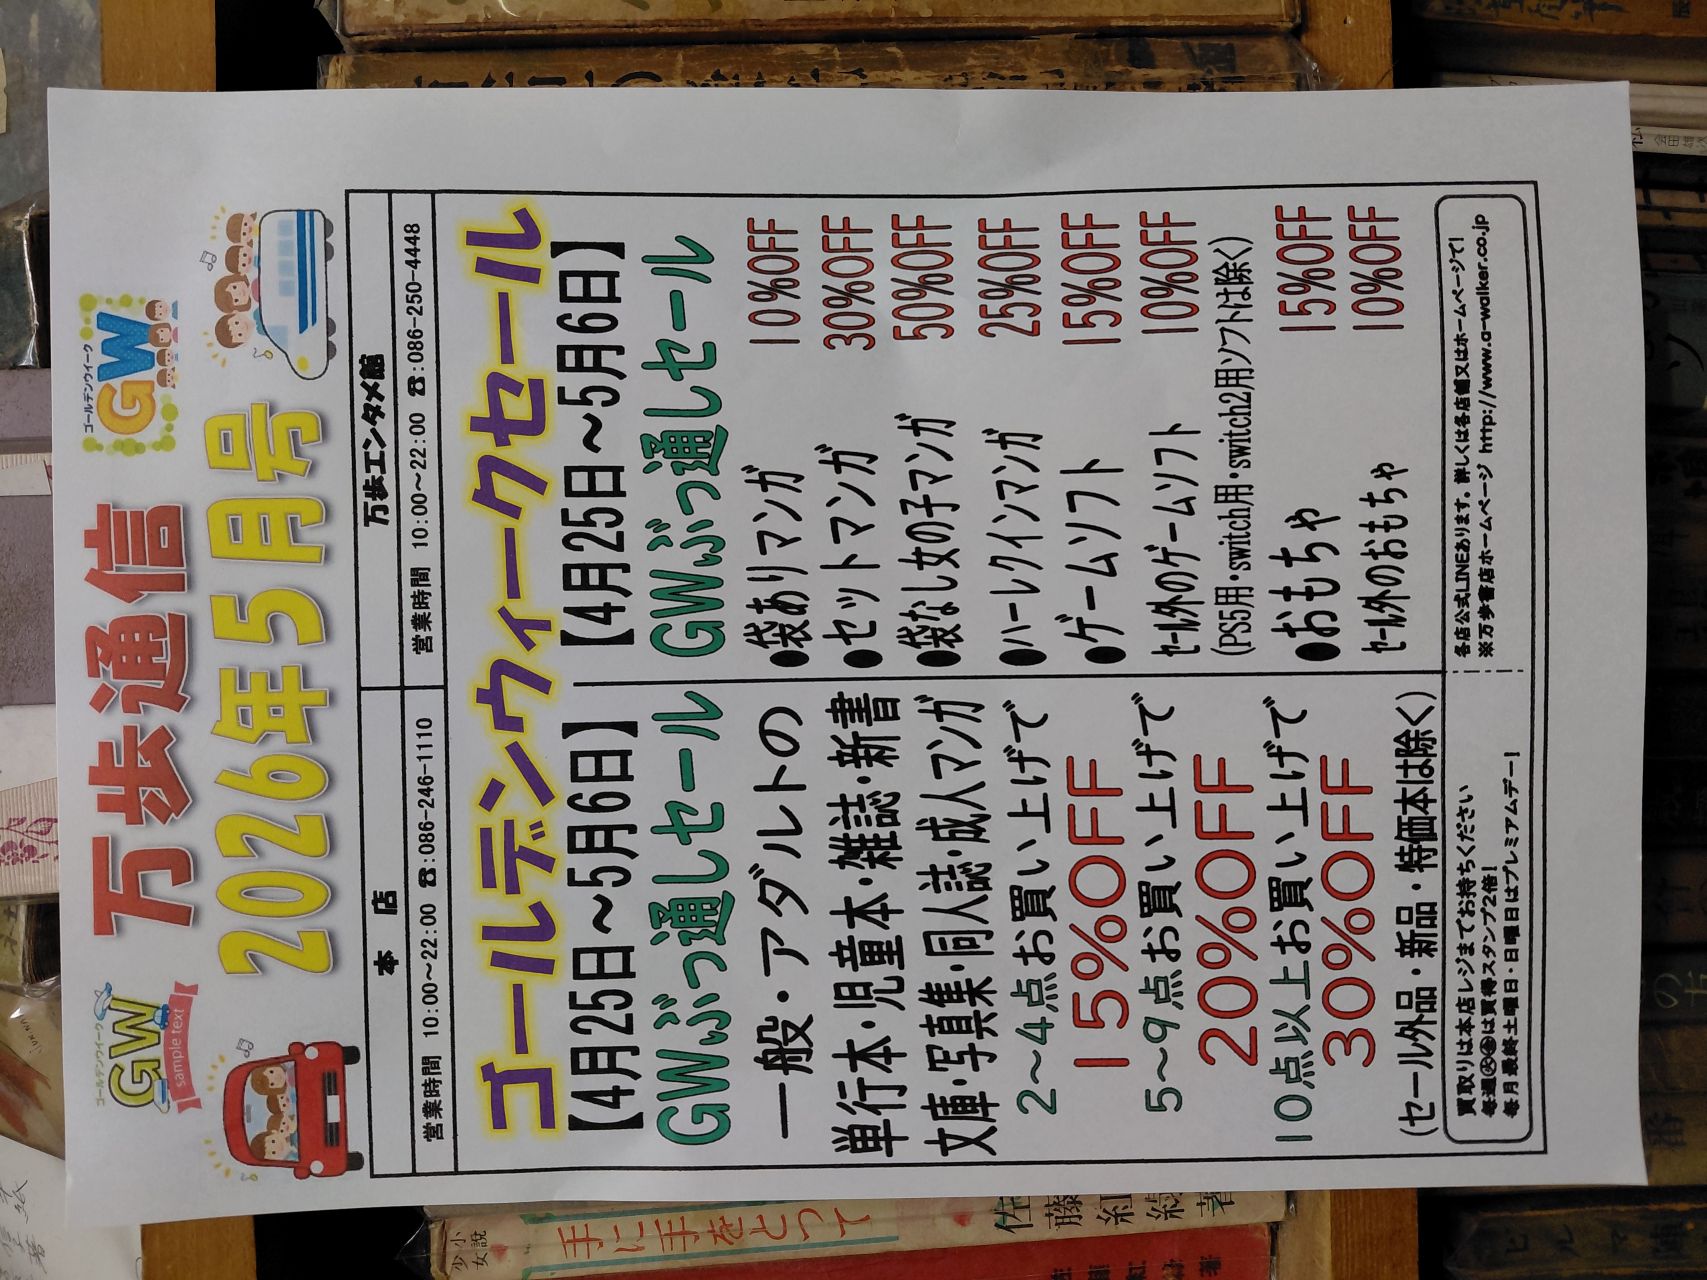 万歩通信
2026年5月号
ゴールデンウイーク
GW
sample text
ゴールデンウィーク
GW
本店
営業時間 10:00～22:00 ☎:086-246-1110
万歩エンタメ館
営業時間 10:00～22:00 ☎:086-250-4448
ゴールデンウィークセール
【4月25日～5月6日】
GWぶっ通しセール
一般・アダルトの
単行本・児童本・雑誌・新書
文庫・写真集・同人誌・成人マンガ
2～4点お買い上げで
15%OFF
5～9点お買い上げで
20%OFF
10点以上お買い上げで
30%OFF
(セール外品・新品・特価本は除く)
【4月25日～5月6日】
GWぶっ通しセール
●袋ありマンガ 10%OFF
●セットマンガ 30%OFF
●袋なし女の子マンガ 50%OFF
●ハーレクインマンガ 25%OFF
●ゲームソフト 15%OFF
セール外のゲームソフト 10%OFF
(PS5用・switch用・switch2用ソフトは除く)
●おもちゃ 15%OFF
セール外のおもちゃ 10%OFF
買取りは本店レジまでお持ちください
毎週㊌㊎は買得スタンプ2倍！
毎月最終土曜日・日曜日はプレミアムデー！
各店公式LINEあります。詳しくは各店舗又はホームページで！
※万歩書店ホームページ http://www.a-walker.co.jp
少女小説
手に手をとつて
佐藤紅緑著